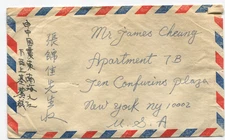 Mr James Cheung
Apartment 7B
Ten Confucius plaza
New York NY 10002
U.S.A
張錦佳先生收
中國廣東